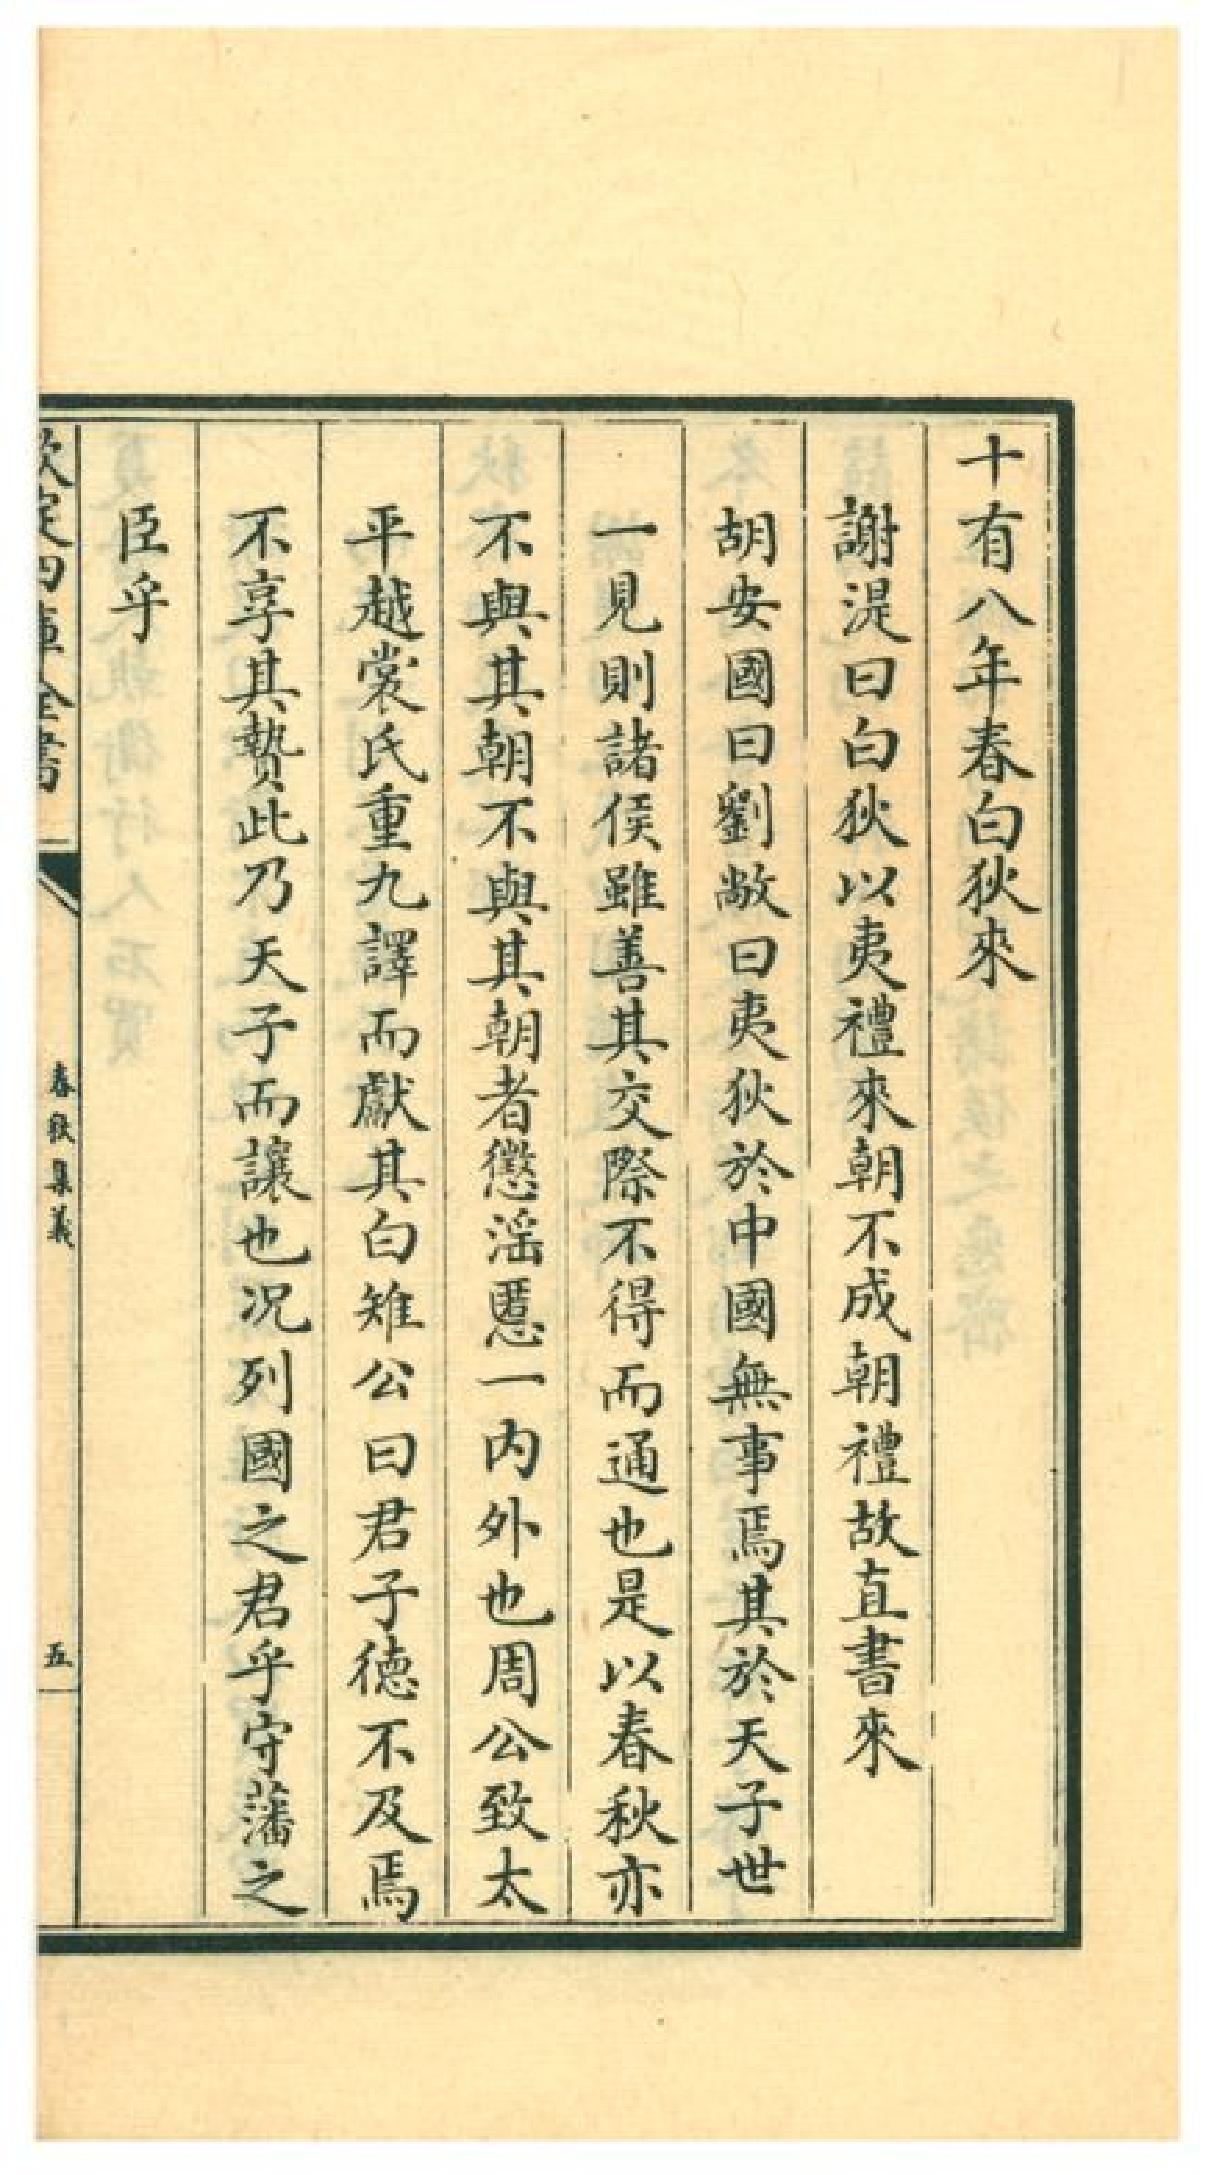 十有八年春白狄來
謝湜曰白狄以夷禮來朝不成朝禮故直書來
胡安國曰劉敞曰夷狄於中國無事焉其於天子世
一見則諸侯雖善其交際不得而通也是以春秋亦
不與其朝不與其朝者懲淫慝一内外也周公致太
平越裳氏重九譯而獻其白雉公曰君子德不及焉
不享其贄此乃天子而讓也况列國之君乎守藩之
臣乎
欽定四庫全書
春秋集義
五